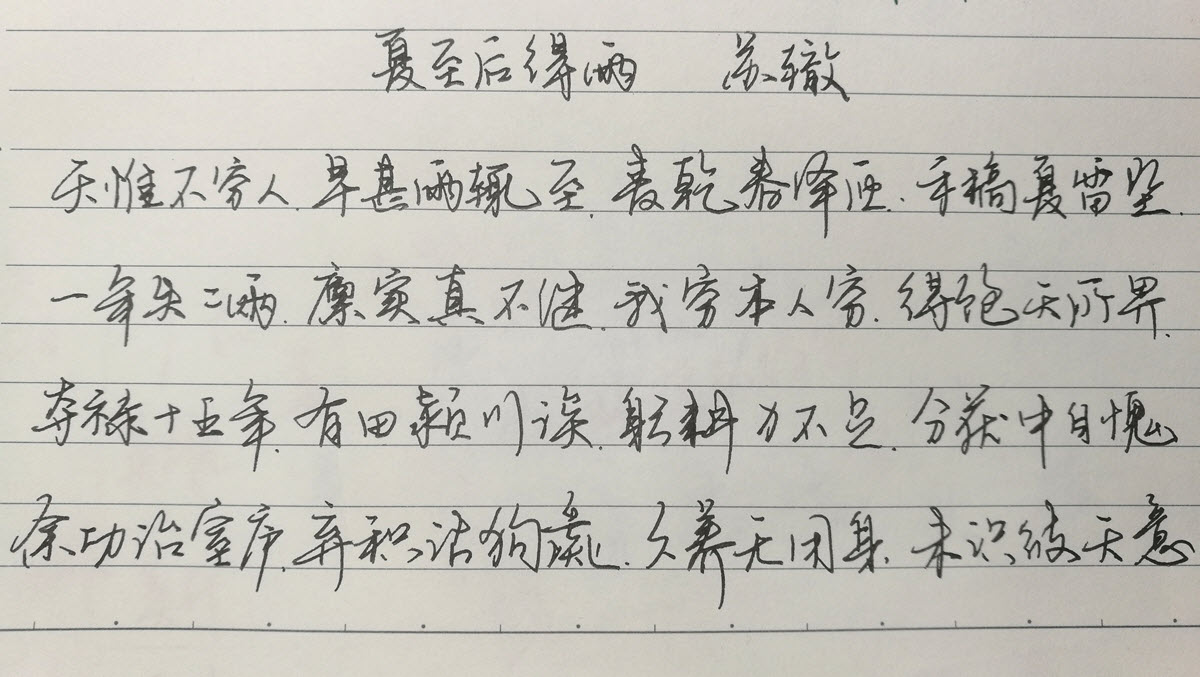 夏至后得雨 苏辙
天惟不穷人.旱甚雨辄至.麦乾春泽匝.禾稿夏雷坠.
一年失二雨.廪实真不继.我穷本人穷.得饱天所畀.
夺禄十五年.有田颍川涘.躬耕力不足.分获中自愧
余功治室庐.弃积沾狗彘.久养无用身.未识彼天意